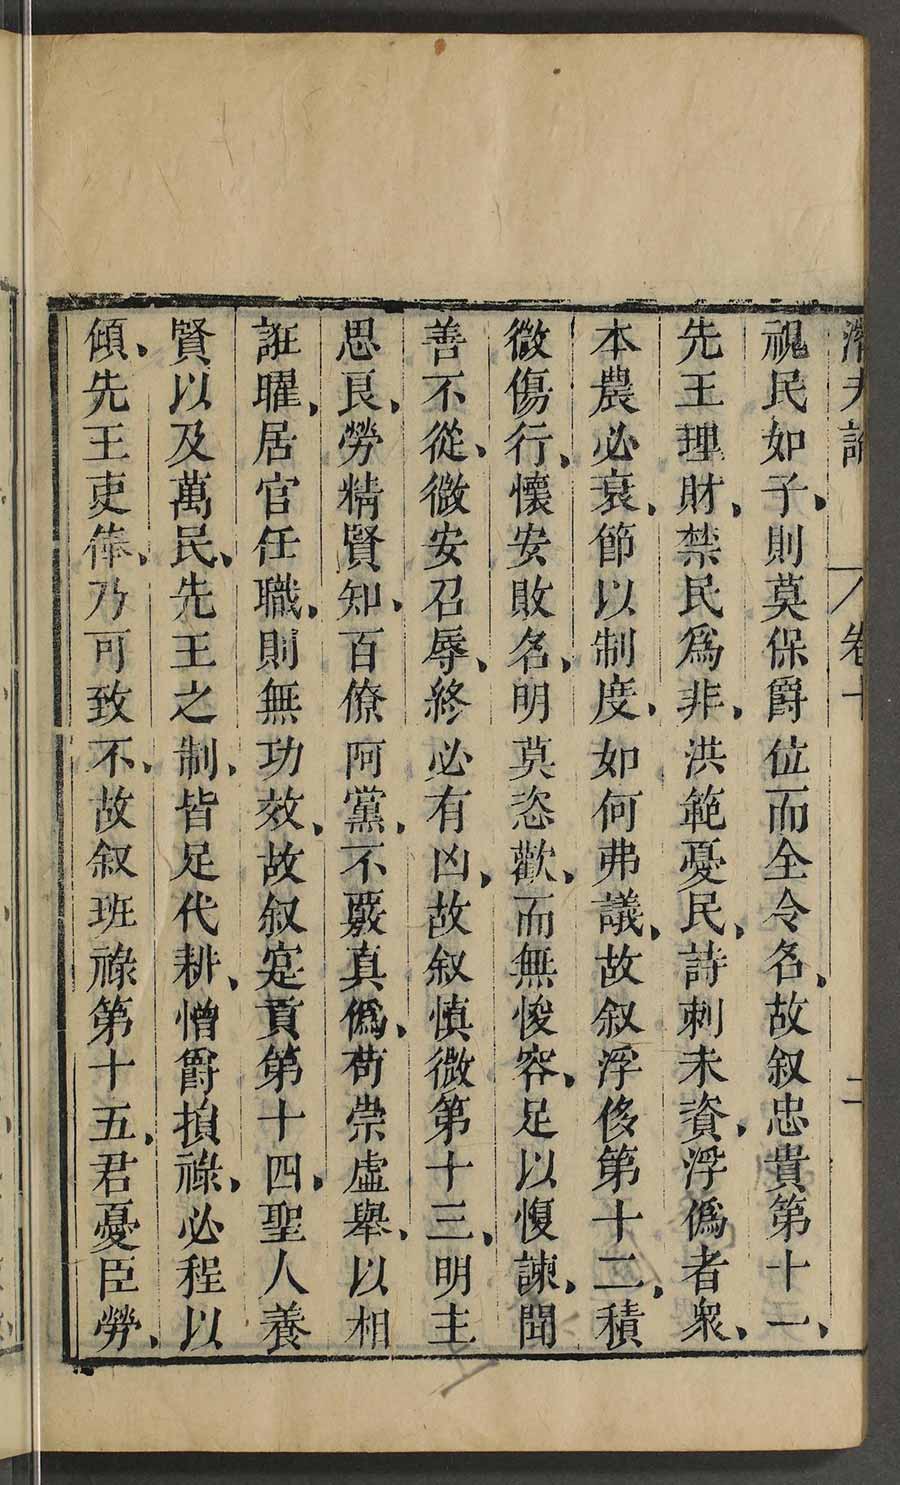 潛夫論 卷十 二
視民如子、則莫保爵位而全令名、故叙忠貴第十一、
先王理財、禁民爲非、洪範憂民、詩刺末資、浮僞者衆、
本農必衰、節以制度、如何弗議、故叙浮侈第十二、積
微傷行、懷安敗名、明莫恣歡、而無悛容、足以愎諫、聞
善不從、微安召辱、終必有凶、故叙慎微第十三、明主
思良、勞精賢知、百僚阿黨、不覈真僞、苟崇虛舉、以相
誑曜、居官任職、則無功效、故叙寔貢第十四、聖人養
賢以及萬民、先王之制、皆足代耕、憎爵損祿、必程以
傾、先王吏俸、乃可致不、故叙班祿第十五、君憂臣勞、